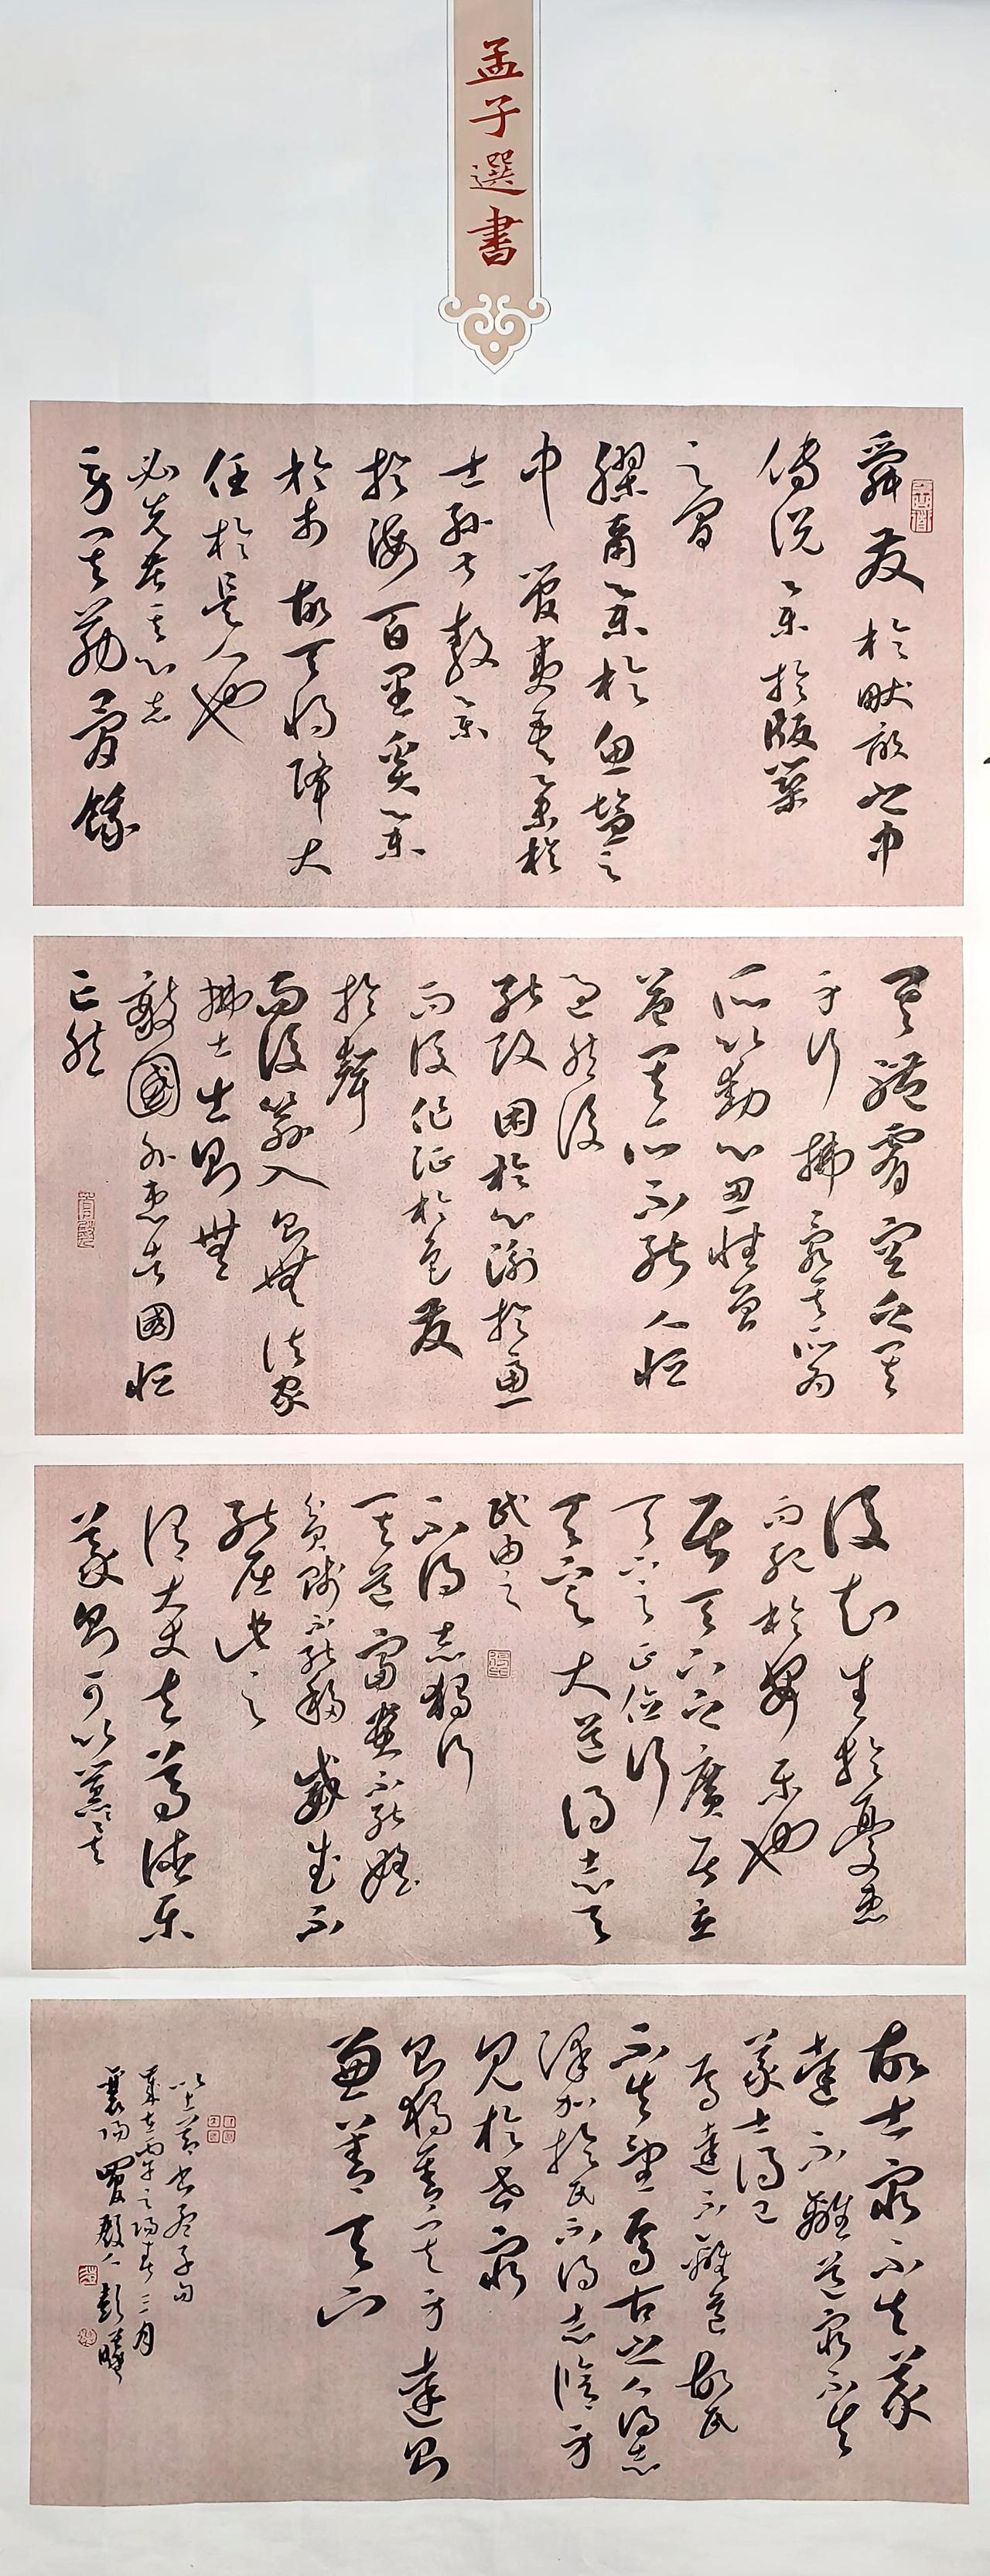 孟子選書
舜發於畎畝之中
傅說舉於版築
之間
膠鬲舉於魚鹽之
中管夷吾舉於
士孫叔敖舉
於海百里奚舉
於市故天將降大
任於是人也
必先苦其心志
勞其筋骨餓
其體膚空乏其
身行拂亂其所為
所以動心忍性曾
益其所不能人恒
過然後
能改困於心衡於慮
而後作徵於色發
於聲
而後喻入則無法家
拂士出則無
敵國外患者國恒
亡然
後知生於憂患
而死於安樂也
居天下之廣居立
天下之正位行
天下之大道得志與
民由之
不得志獨行
其道富貴不能淫
貧賤不能移威武不
能屈此之
謂大丈夫尊德樂
義則可以囂囂矣
故士窮不失義
達不離道窮不失
義士得己
焉達不離道故民
不失望焉古之人得志
澤加於民不得志脩身
見於世窮
則獨善其身達則
兼善天下
以上節書孟子句
歲在丙午之陽春三月
襄陽